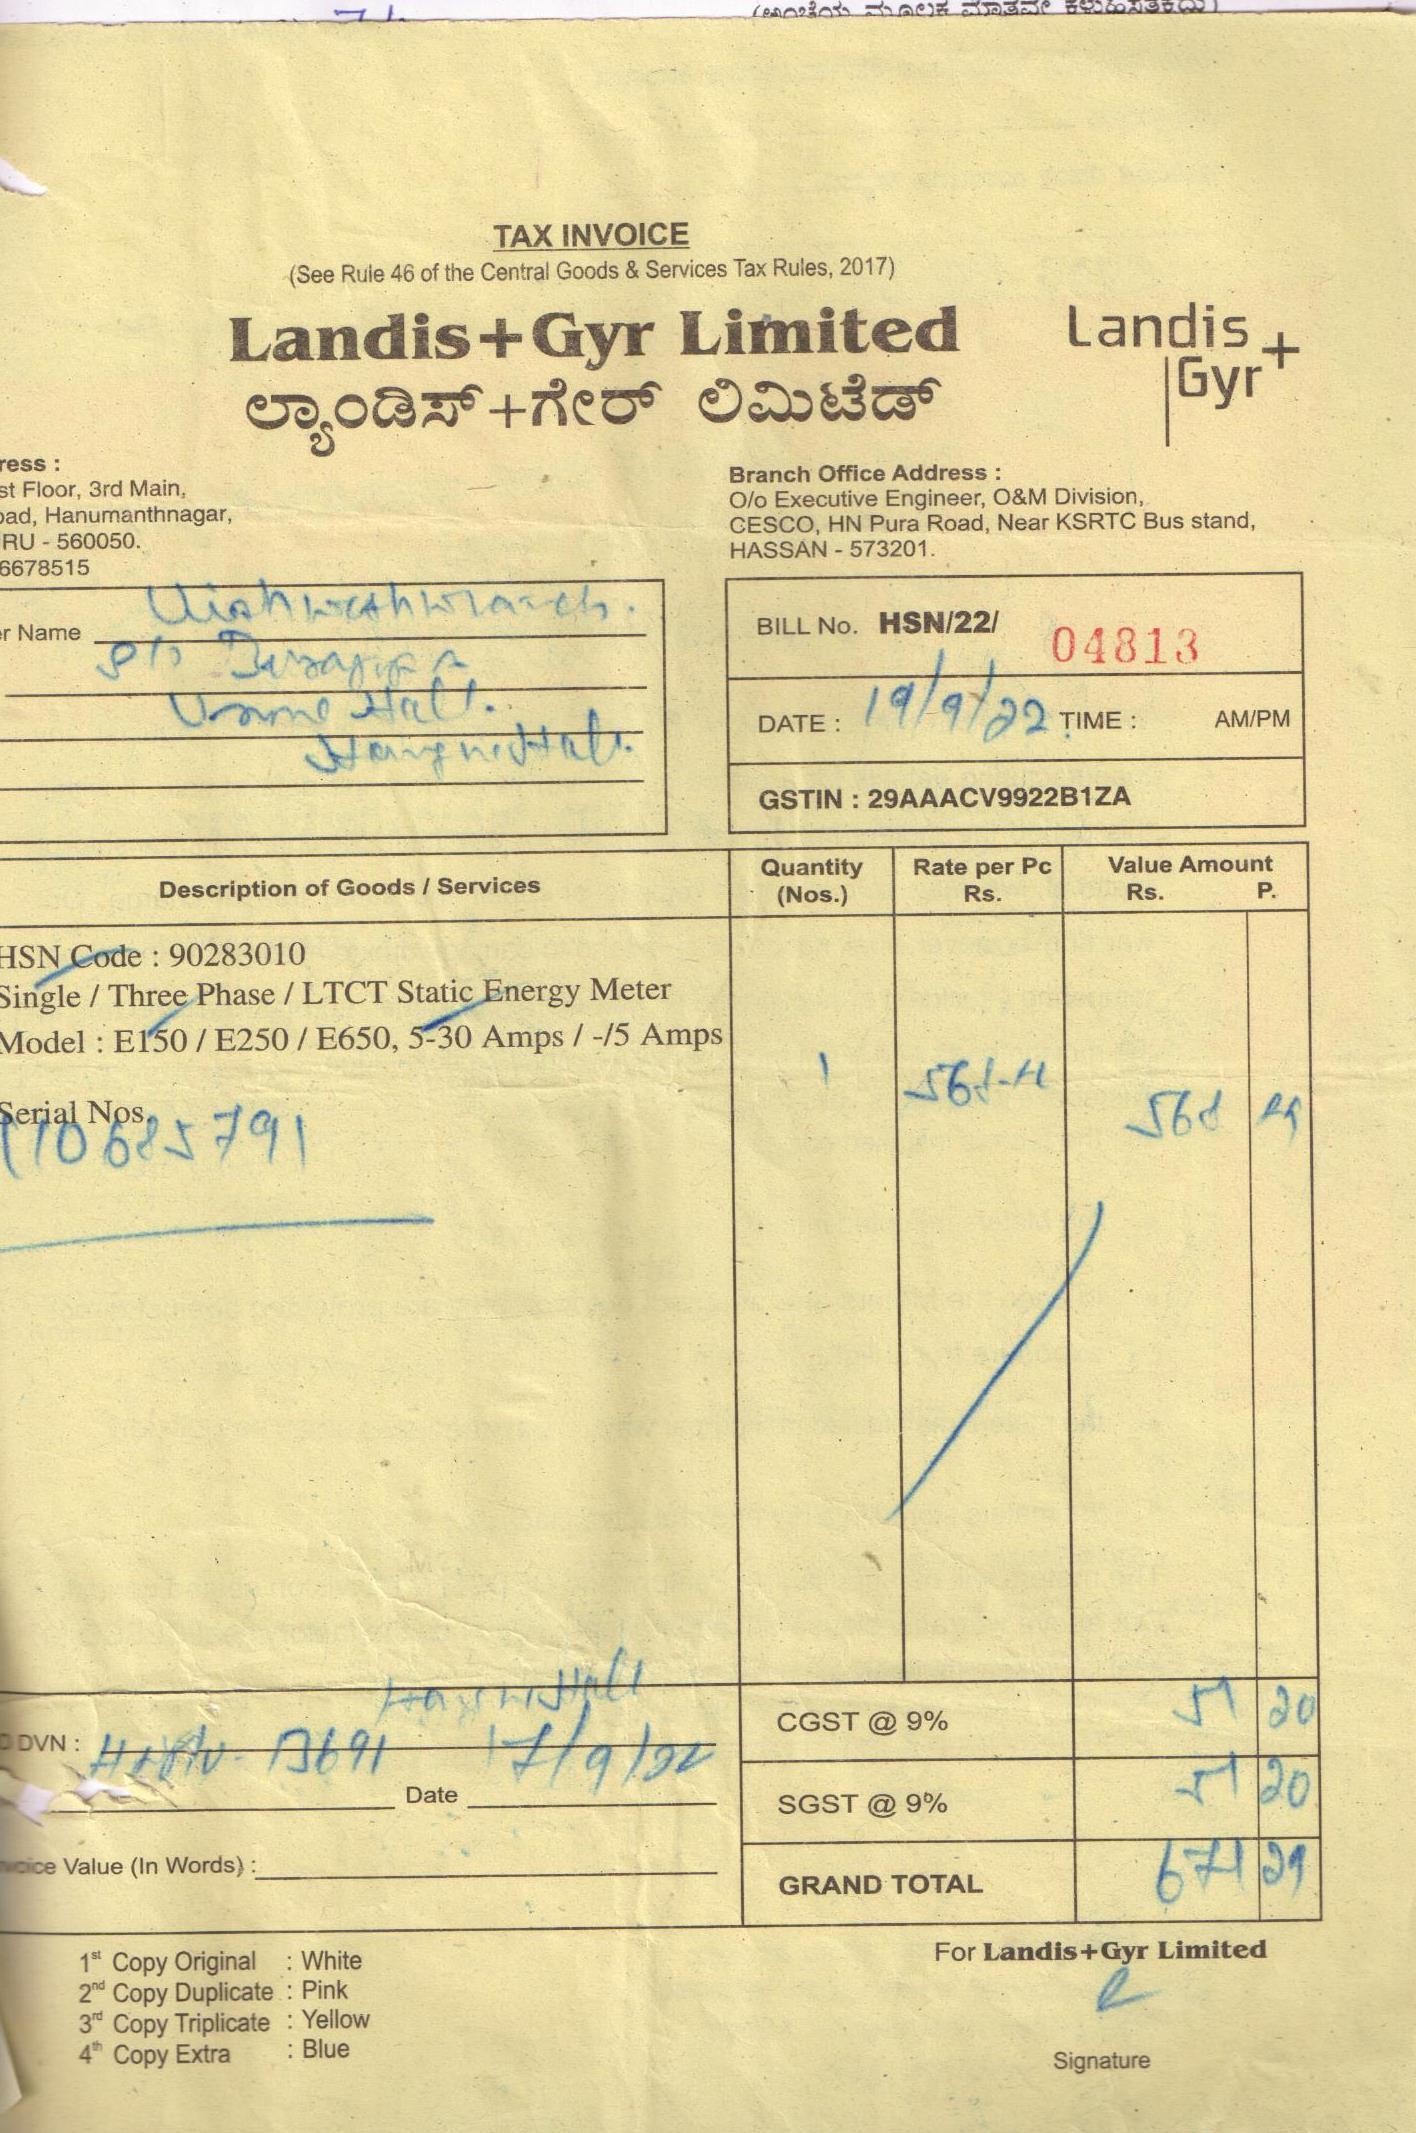 TAX INVOICE
(See Rule 46 of the Central Goods & Services Tax Rules, 2017)
Landis+Gyr Limited
ಲ್ಯಾಂಡಿಸ್+ಗೇರ್ ಲಿಮಿಟೆಡ್
Landis
Gyr+
ress :
st Floor, 3rd Main,
oad, Hanumanthnagar,
RU - 560050.
6678515
Branch Office Address :
O/o Executive Engineer, O&M Division,
CESCO, HN Pura Road, Near KSRTC Bus stand,
HASSAN - 573201.
er Name
S/o
BILL No. HSN/22/ 04813
DATE : 19/9/22 TIME : AM/PM
GSTIN : 29AAACV9922B1ZA
Description of Goods / Services
Quantity (Nos.)
Rate per Pc Rs.
Value Amount Rs. P.
HSN Code : 90283010
Single / Three Phase / LTCT Static Energy Meter
Model : E150 / E250 / E650, 5-30 Amps / -/5 Amps
1
568
Serial Nos.
10685791
CGST @ 9% 51 20
DVN : 17/9/22
Date
SGST @ 9% 51 20
oice Value (In Words) :
GRAND TOTAL 671 29
1st Copy Original : White
2nd Copy Duplicate : Pink
3rd Copy Triplicate : Yellow
4th Copy Extra : Blue
For Landis+Gyr Limited
Signature